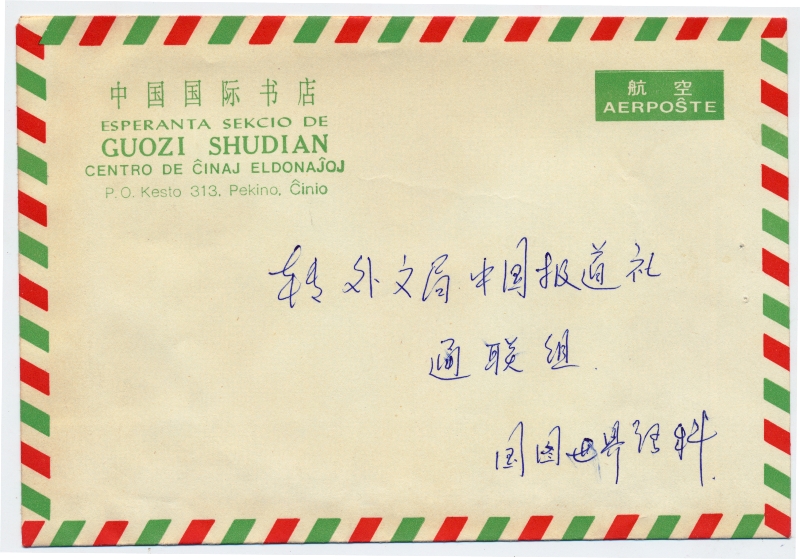 中国国际书店
ESPERANTA SEKCIO DE
GUOZI SHUDIAN
CENTRO DE ĈINAJ ELDONAĴOJ
P.O. Kesto 313, Pekino, Ĉinio
航 空
AERPOŜTE
转 外文局 中国报道社
通联组
国图世界语科